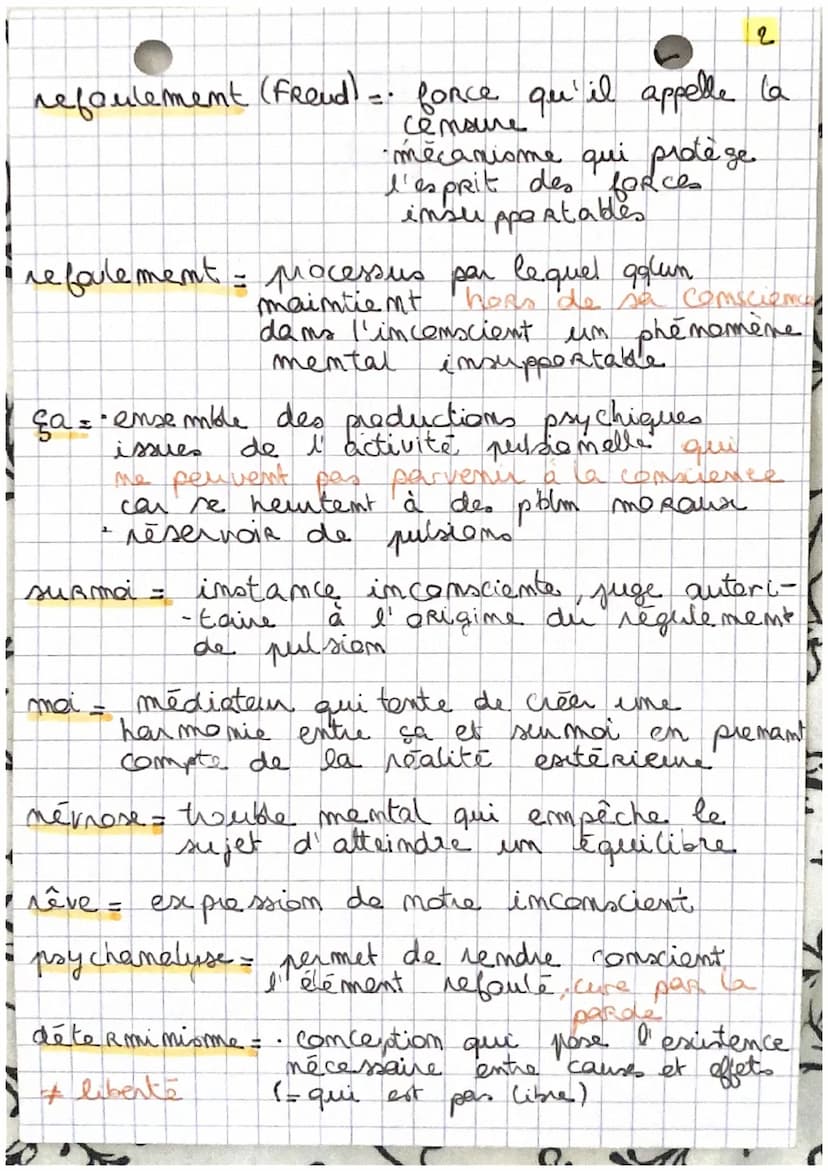 2
refoulement (Freud) = · force qu'il appelle la
censure
· mécanisme qui protège
l'esprit des forces
insupportables
refoulement = processus par lequel qqlun
maintient hors de sa conscience
dans l'inconscient un phénomène
mental insupportable
ça = · ensemble des productions psychiques
issues de l'activité pulsionnelle qui
ne peuvent pas parvenir à la conscience
car se heurtent à des pblm moraux
· réservoir de pulsions
surmoi = instance inconsciente, juge autori-
-taire à l'origine du régulement
de pulsion
moi = médiateur qui tente de créer une
harmonie entre ça et surmoi en prenant
compte de la réalité extérieure
névrose = trouble mental qui empêche le
sujet d'atteindre un équilibre
rêve = expression de notre inconscient
psychanalyse = permet de rendre conscient
l'élément refoulé, cure par la
parole
déterminisme = · conception qui pose l'existence
nécessaire entre causes et effets
≠ liberté (= qui est pas libre)